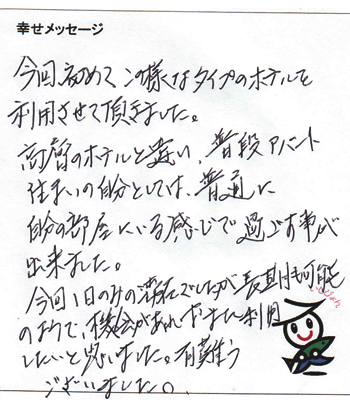 幸せメッセージ
今回初めてこの様なタイプのホテルを
利用させて頂きました。
高層のホテルと違い、普段アパート
住まいの自分としては、普通に
自分の部屋にいる感じで過ごす事が
出来ました。
今回1日のみの滞在でしたが長期も可能
のようで、機会があればまた利用
したいと思いました。有難う
ございました。